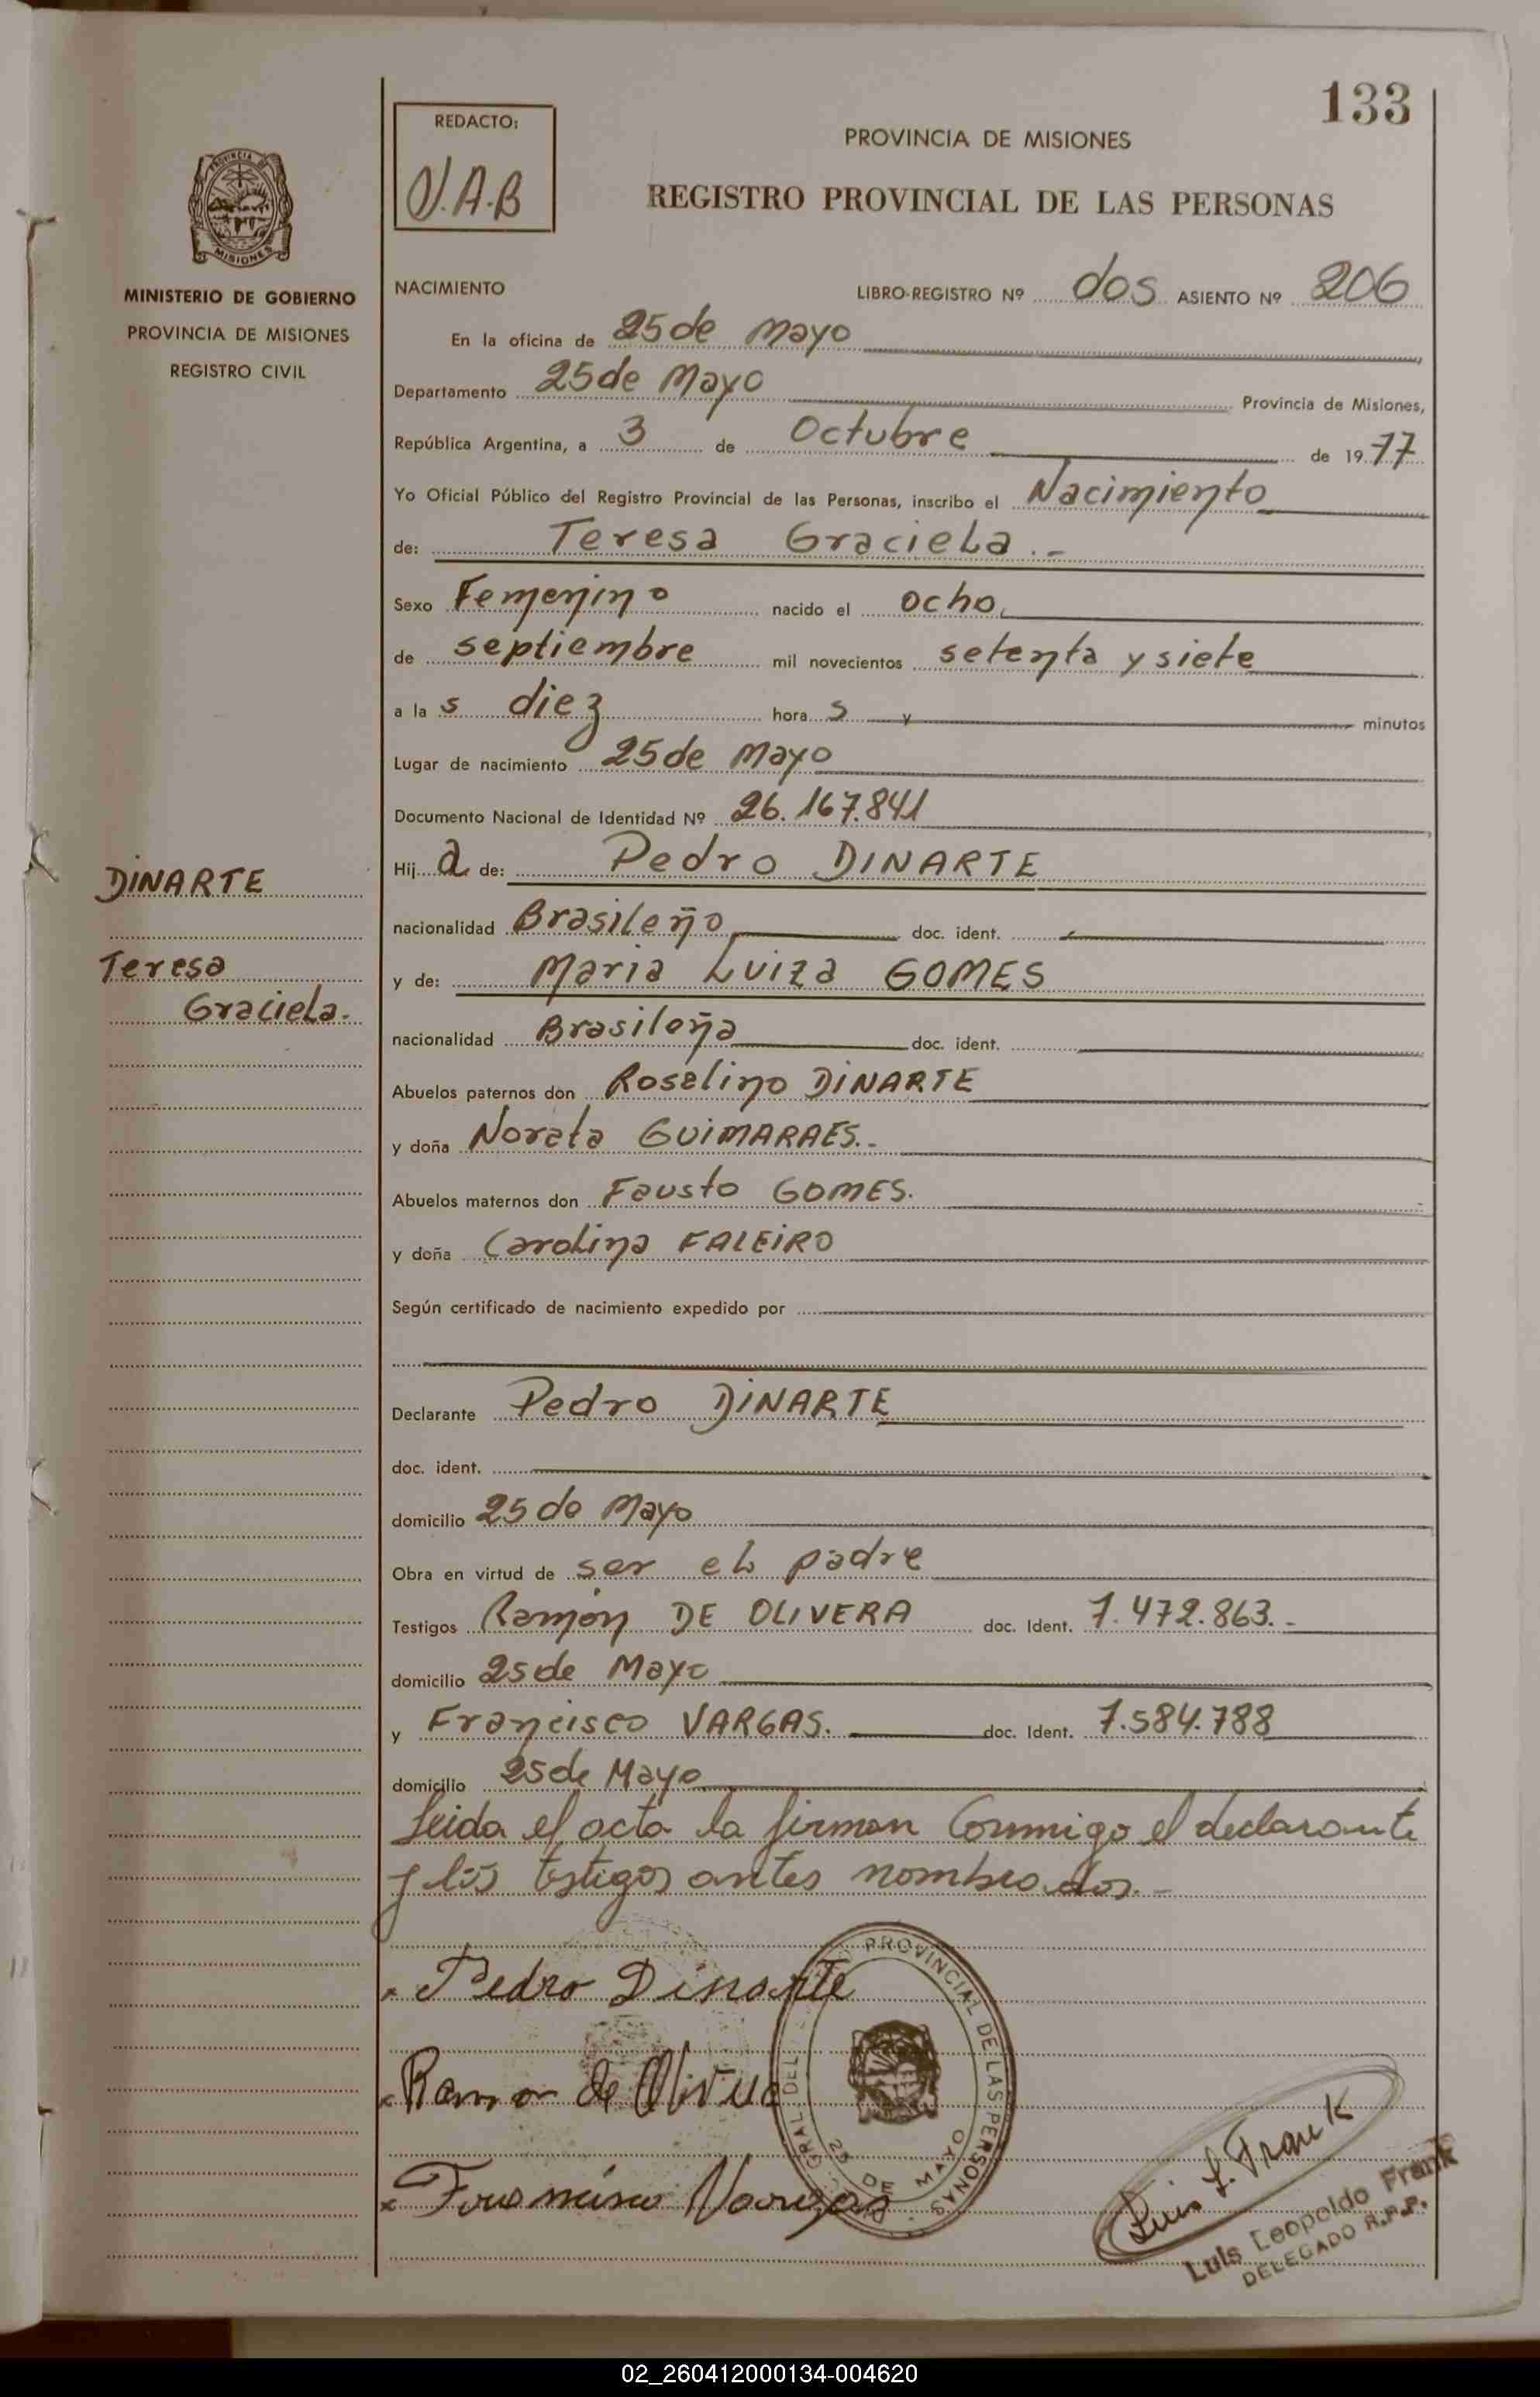 133
REDACTO:
V.A.B
PROVINCIA DE MISIONES
REGISTRO PROVINCIAL DE LAS PERSONAS
PROVINCIA DE
MISIONES
MINISTERIO DE GOBIERNO
PROVINCIA DE MISIONES
REGISTRO CIVIL
NACIMIENTO LIBRO-REGISTRO Nº dos ASIENTO Nº 206
En la oficina de 25 de Mayo
Departamento 25 de Mayo Provincia de Misiones,
República Argentina, a 3 de Octubre de 1977
Yo Oficial Público del Registro Provincial de las Personas, inscribo el Nacimiento
de: Teresa Graciela.-
Sexo Femenino nacido el ocho
de septiembre mil novecientos setenta y siete
a la s diez hora s y minutos
Lugar de nacimiento 25 de Mayo
Documento Nacional de Identidad Nº 26.167.841
Hij a de: Pedro DINARTE
nacionalidad Brasileño doc. ident.
y de: Maria Luiza GOMES
nacionalidad Brasileña doc. ident.
DINARTE
Teresa
Graciela.
Abuelos paternos don Roselino DINARTE
y doña Norata GUIMARAES.-
Abuelos maternos don Fausto GOMES.
y doña Carolina FALEIRO
Según certificado de nacimiento expedido por
Declarante Pedro DINARTE
doc. ident.
domicilio 25 de Mayo
Obra en virtud de ser el padre
Testigos Ramón DE OLIVERA doc. Ident. 7.472.863.-
domicilio 25 de Mayo
y Francisco VARGAS. doc. Ident. 7.584.788
domicilio 25 de Mayo
Leida el acta la firman Conmigo el declarante
y los testigos antes nombrados.-
Pedro Dinarte
Ramon de Olivera
Francisco Vargas
PROVINCIAL DE LAS PERSONAS
GRAL DEL
25 DE MAYO
Luis L. Frank
Luis Leopoldo Frank
DELEGADO R.P.P.
02_260412000134-004620